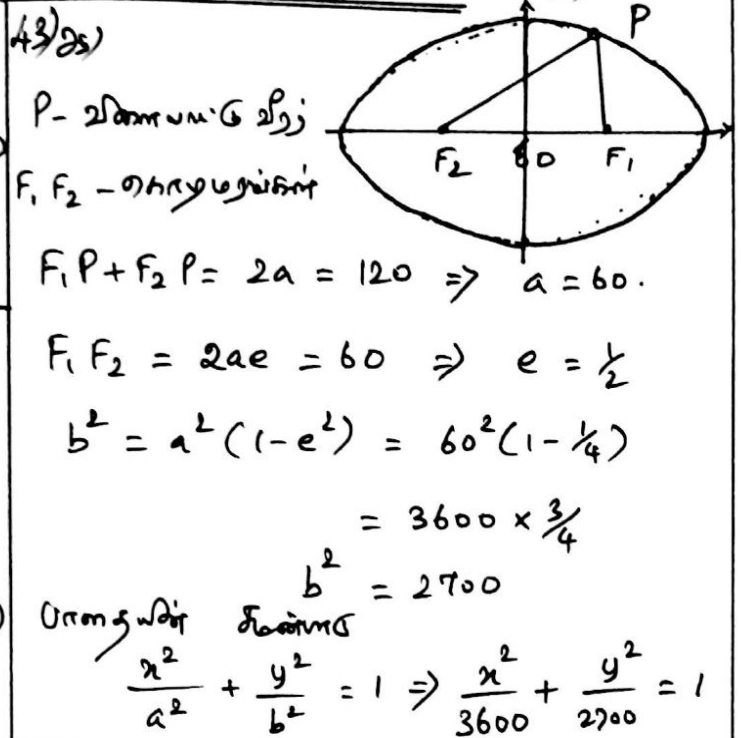 43) அ)
P
P - விளையாட்டு வீரர்
F₂ O F₁
F₁ F₂ - கொடிமரங்கள்
F₁P + F₂P = 2a = 120 ⇒ a = 60.
F₁F₂ = 2ae = 60 ⇒ e = 1/2
b² = a²(1-e²) = 60²(1-1/4)
= 3600 × 3/4
b² = 2700
பாதையின் சமன்பாடு
x²/a² + y²/b² = 1 ⇒ x²/3600 + y²/2700 = 1